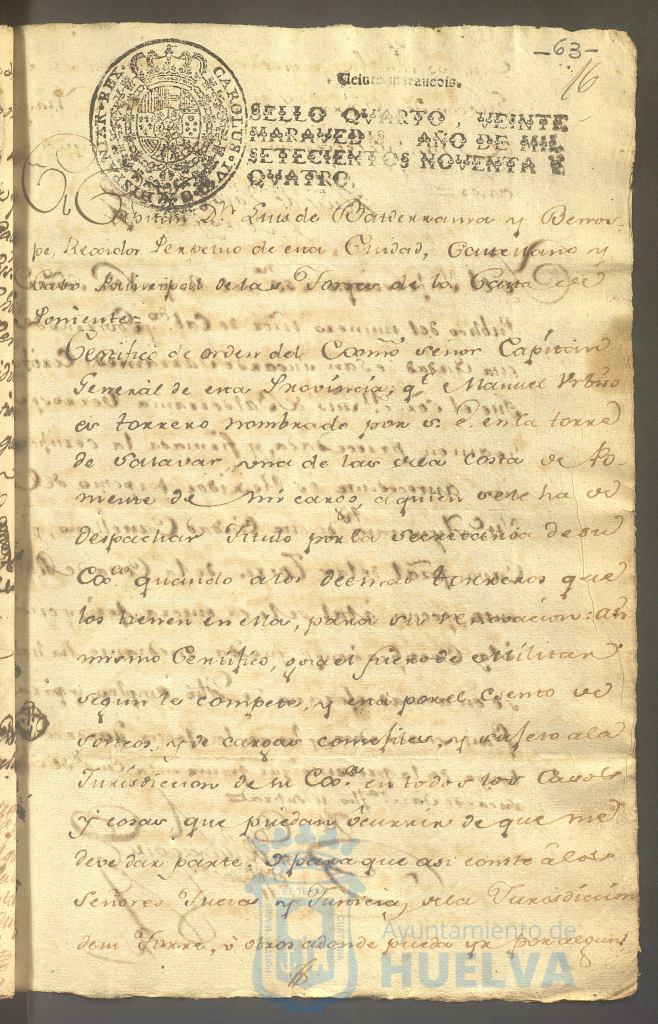 -63-
16
CAROLUS IV D G HISPANIAR REX
Veinte maravedis.
SELLO QVARTO, VEINTE
MARAVEDIS, AÑO DE MIL
SETECIENTOS NOVENTA Y
QVATRO.
Capitan Dn. Luis de Balderrama y Berros-
pe, Rexidor Perpetuo de esta Ciudad, Castellano y
Cabo Prinсipal de las Torres de la Costa de
Poniente=
Certifico de orden del Exmõ señor Capitan
General de esta Provincia, qe. Manuel
es torrero nombrado por S. E. en la torre
de Salavar, una de las de la costa de Po-
niente de mi cargo, a quien se le ha de
despachar Titulo por la Secretaría de su
Exa. quando a los demas torreros que
los tienen en ella, para su renovacion: a
mismo Certifico, goza el fuero de Militar
segun le compete, y está por el Esento de
Sorteos, y de cargas consejiles, y sujeto a la
Jurisdiccion de su Exa. en todos los Casos
y cosas que puedan ocurrir de que me
deve dar parte. Y para que asi conste â los
Señores Jueces y Justicias de la Jurisdiccion
de su Torre, ò otros adonde pueda yr por algun
Ayuntamiento de
HUELVA